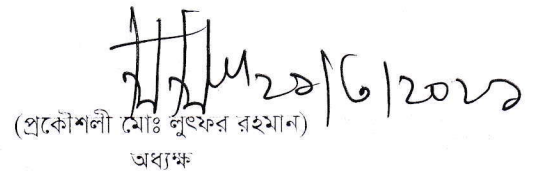 ২১/৬/২০২১
(প্রকৌশলী মোঃ লুৎফর রহমান)
অধ্যক্ষ